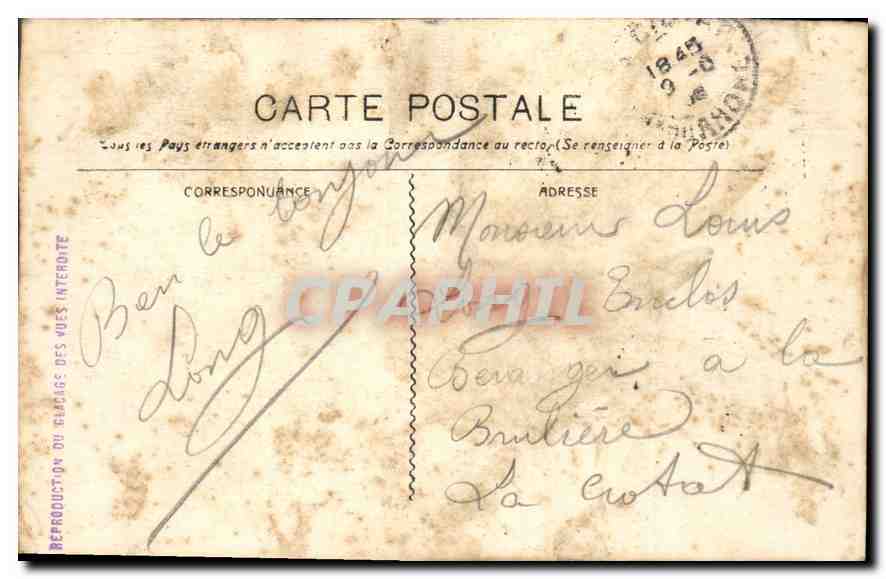 CARTE POSTALE
Tous les Pays étrangers n'acceptent pas la Correspondance au recto (Se renseigner à la Poste)
CORRESPONDANCE
ADRESSE
Bien le bonjour
Long
Monsieur Louis
Long Enclos
Beranger à la
Brulière
La Ciotat
REPRODUCTION DU GLACAGE DES VUES INTERDITE
1845
9
CPAPHIL